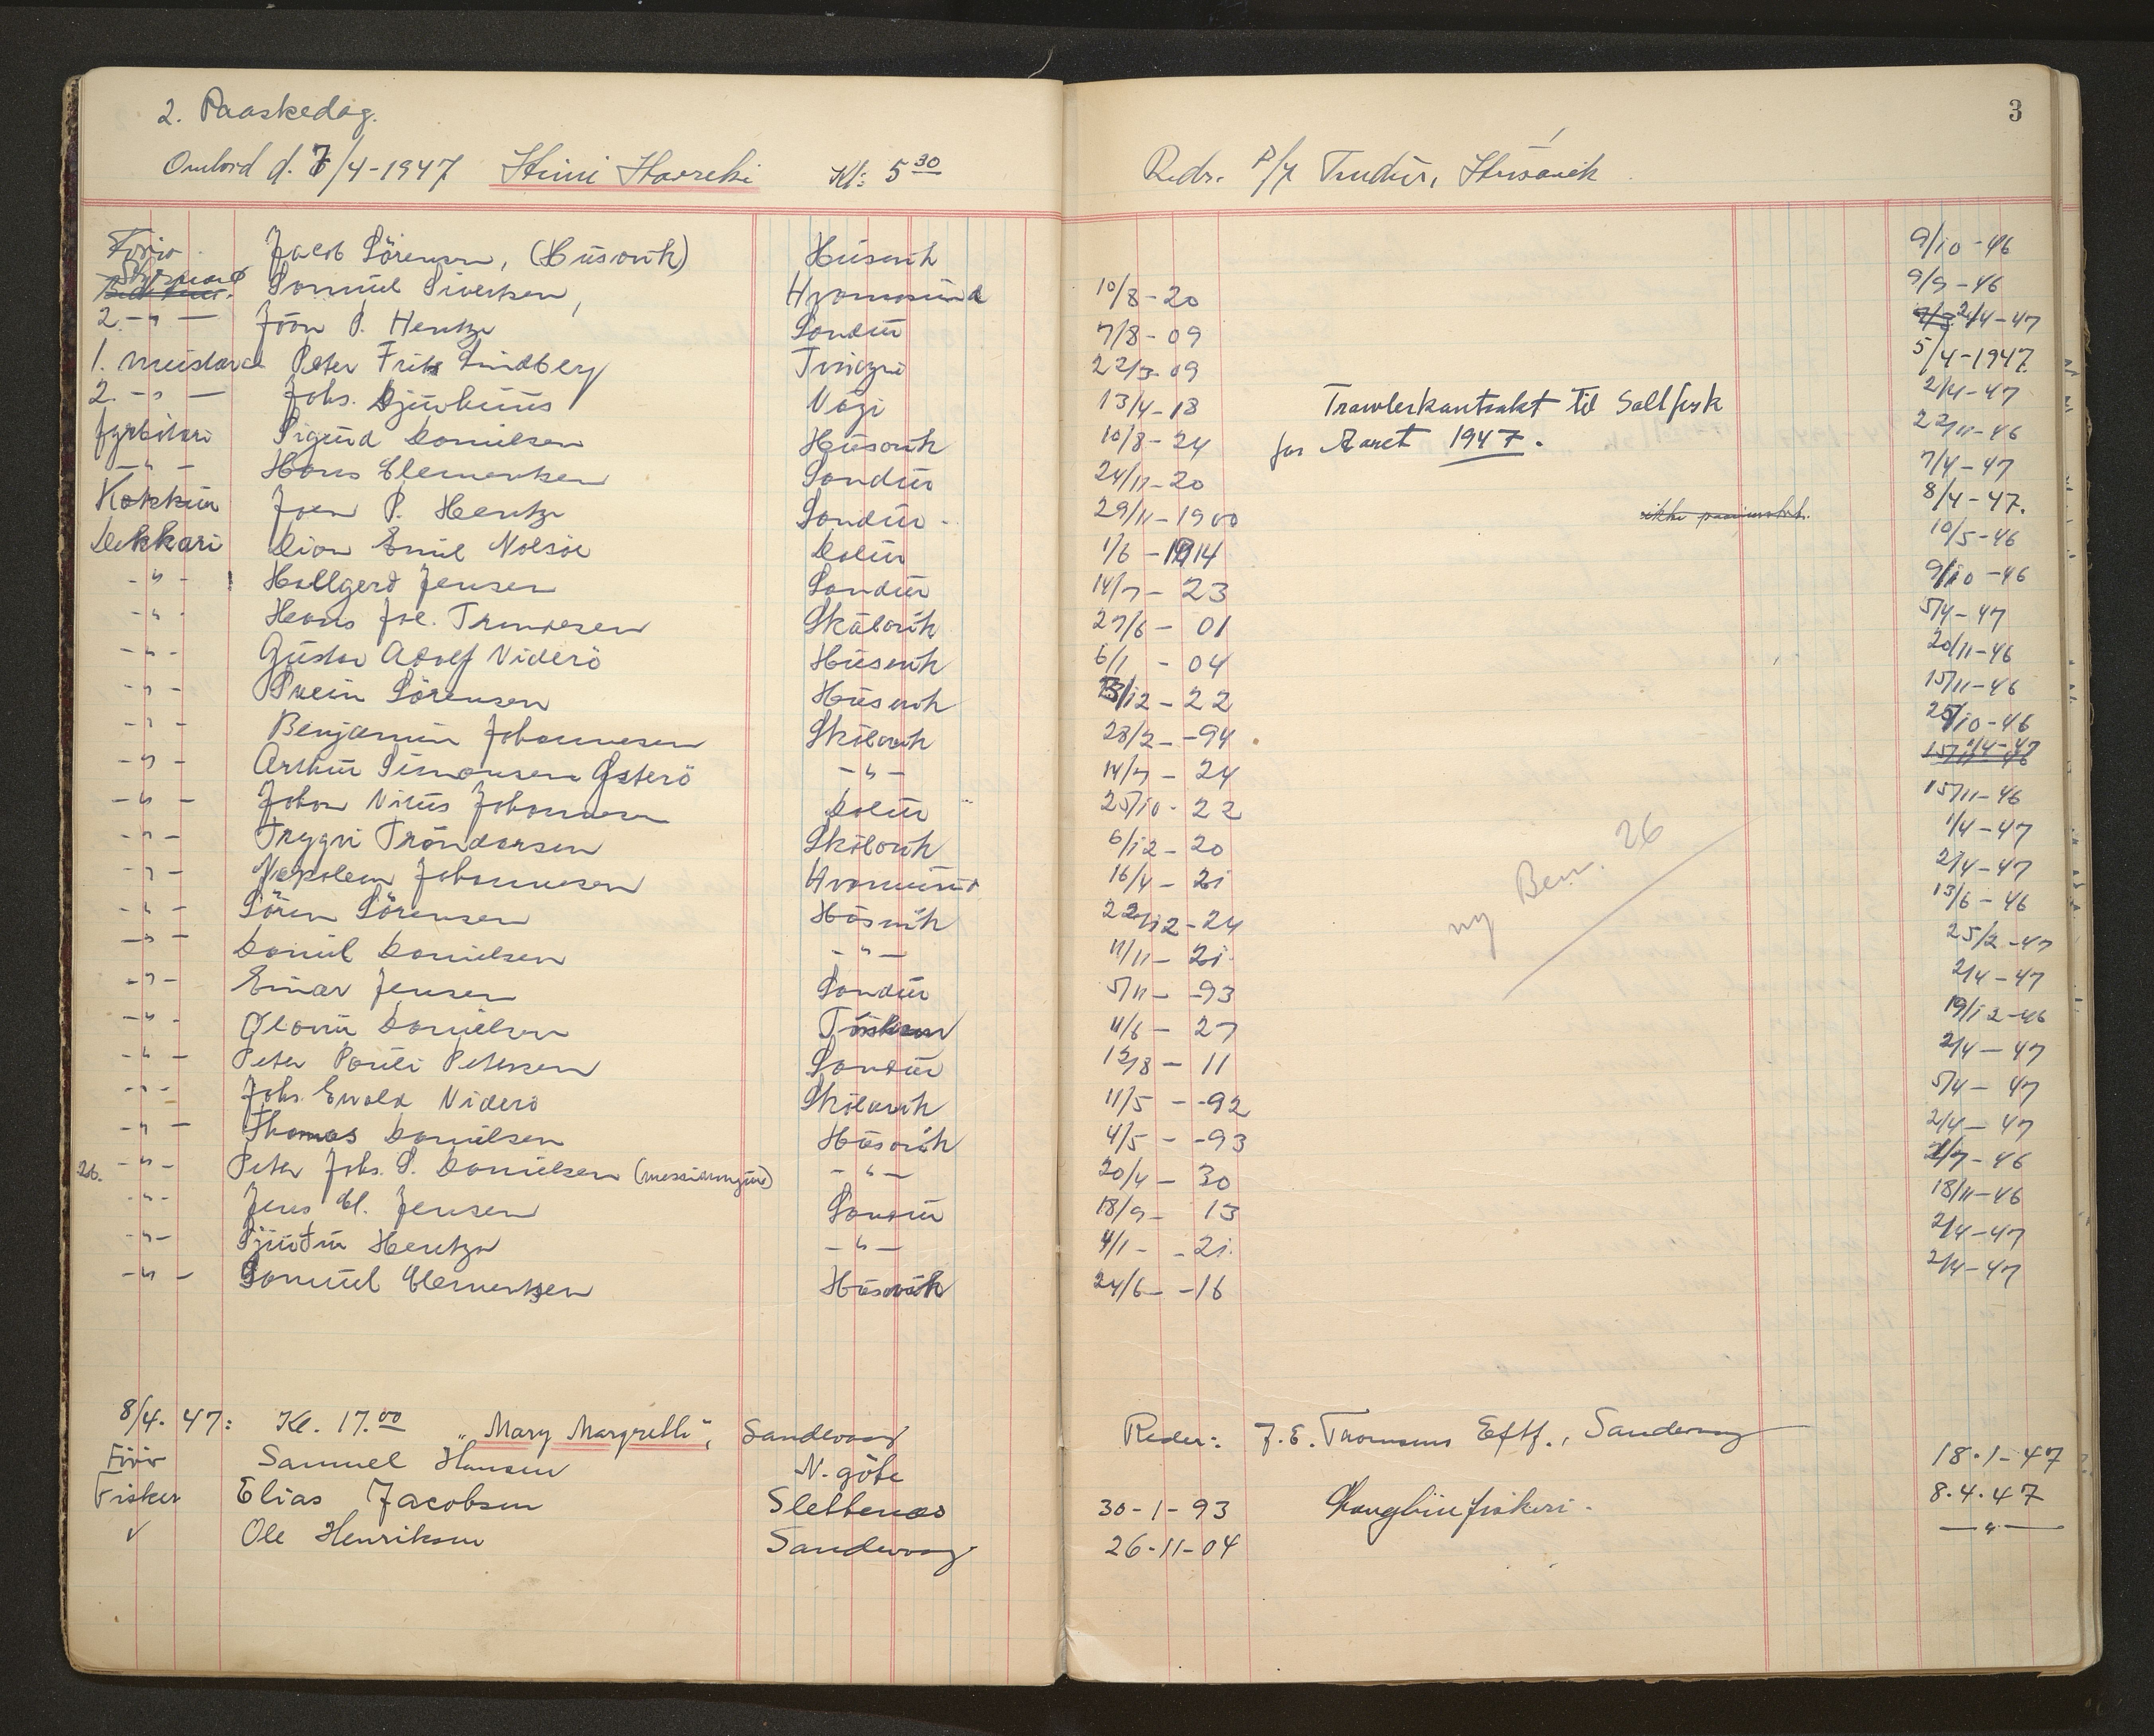 3
2. Paaskedag.
Ombord d. 7/4-1947 Kl: 5 30 Redr. P/f Trudur, Húsavik
Förir Jacob Sörensen, (Húsavik) Húsavik 9/10-46
Styrmand Samuel Sivertsen, Hvannasund 10/8-20 9/9-46
2. -"- Jóan P. Hentze Sandur 7/8-09 2/4-47
1. meistari Peter Fritz Lindberg 22/3-09 5/4-1947
2. -"- Johs. Djurhuus Vági 13/4-18 Trawlerkontrakt til Saltfisk 2/4-47
fyrbötari Sigurd Danielsen Húsavik 10/8-24 for Aaret 1947. 22/11-46
-"- Hans Clementsen Sandur 24/11-20 7/4-47
Kokkur Joen P. Hentze Sandur 29/11-1900 8/4-47.
Dekkari Dion Emil Nolsöe Dalur 1/6-1914 10/5-46
-"- Hallgerd Jensen Sandur 14/7-23 9/10-46
-"- Hans Joe. Skálavik 27/6-01 5/4-47
-"- Gustav Adolf Viderö Húsavik 6/1-04 20/11-46
-"- Svein Sörensen Húsavik 23/12-22 15/11-46
-"- Benjamin Johannesen Skálavik 28/2--94 25/10-46
-"- Arthur Simonsen Østerö -"- 14/7-24 1/4-47
-"- Johan Nicus Johannesen Dalur 25/10-22 15/11-46
-"- Trygvi Tróndarsen Skálavik 6/12-20 1/4-47
-"- Napoleon Johannesen Hvannasund 16/4-21 ny Bem. 26 2/4-47
-"- Sören Sörensen Húsavik 22/12-24 13/6-46
-"- Daniel Danielsen -"- 11/11-21 25/2-47
-"- Einar Jensen Sandur 5/11--93 2/4-47
-"- Olavur Danielsen 11/6-27 19/12-46
-"- Peter Pauli Petersen Sandur 12/8-11 2/4-47
-"- Johs. Ewald Viderö Skálavik 11/5--92 5/4-47
-"- Thomas Danielsen Húsavik 4/5--93 2/4-47
-"- Peter Johs. P. Danielsen (messudrongur) -"- 20/4-30 2/7-46
-"- Jens Cl. Jensen Sandur 18/9-13 18/11-46
-"- Sjúrdur Hentze -"- 4/1-21 2/4-47
-"- Samuel Clementsen Húsavik 24/6--16 2/4-47
8/4. 47: Kl. 17.00 "Mary Margrethe", Sandevaag Reder: J. E. Thomsens Eftf., Sandevaag
Förir Samuel Hansen N. göte 18.1-47
Fisker Elias Jacobsen Slettenæs 30-1-93 8.4.47
v Ole Henriksen Sandevaag 26-11-04 -"-